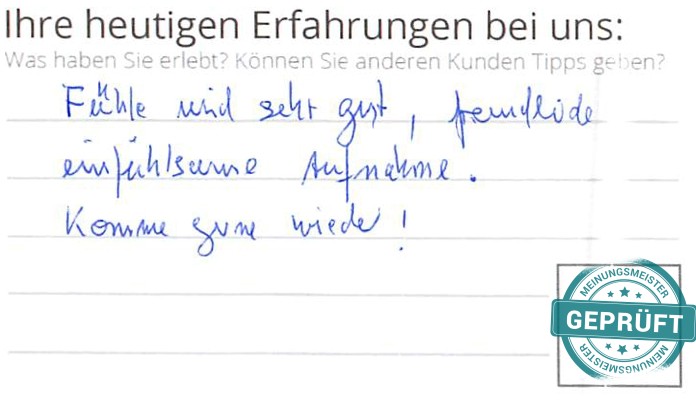 Ihre heutigen Erfahrungen bei uns:
Was haben Sie erlebt? Können Sie anderen Kunden Tipps geben?
Fühle mich sehr gut, freundliche
einfühlsame Aufnahme.
Komme gerne wieder!
MEINUNGSMEISTER
GEPRÜFT
MEINUNGSMEISTER